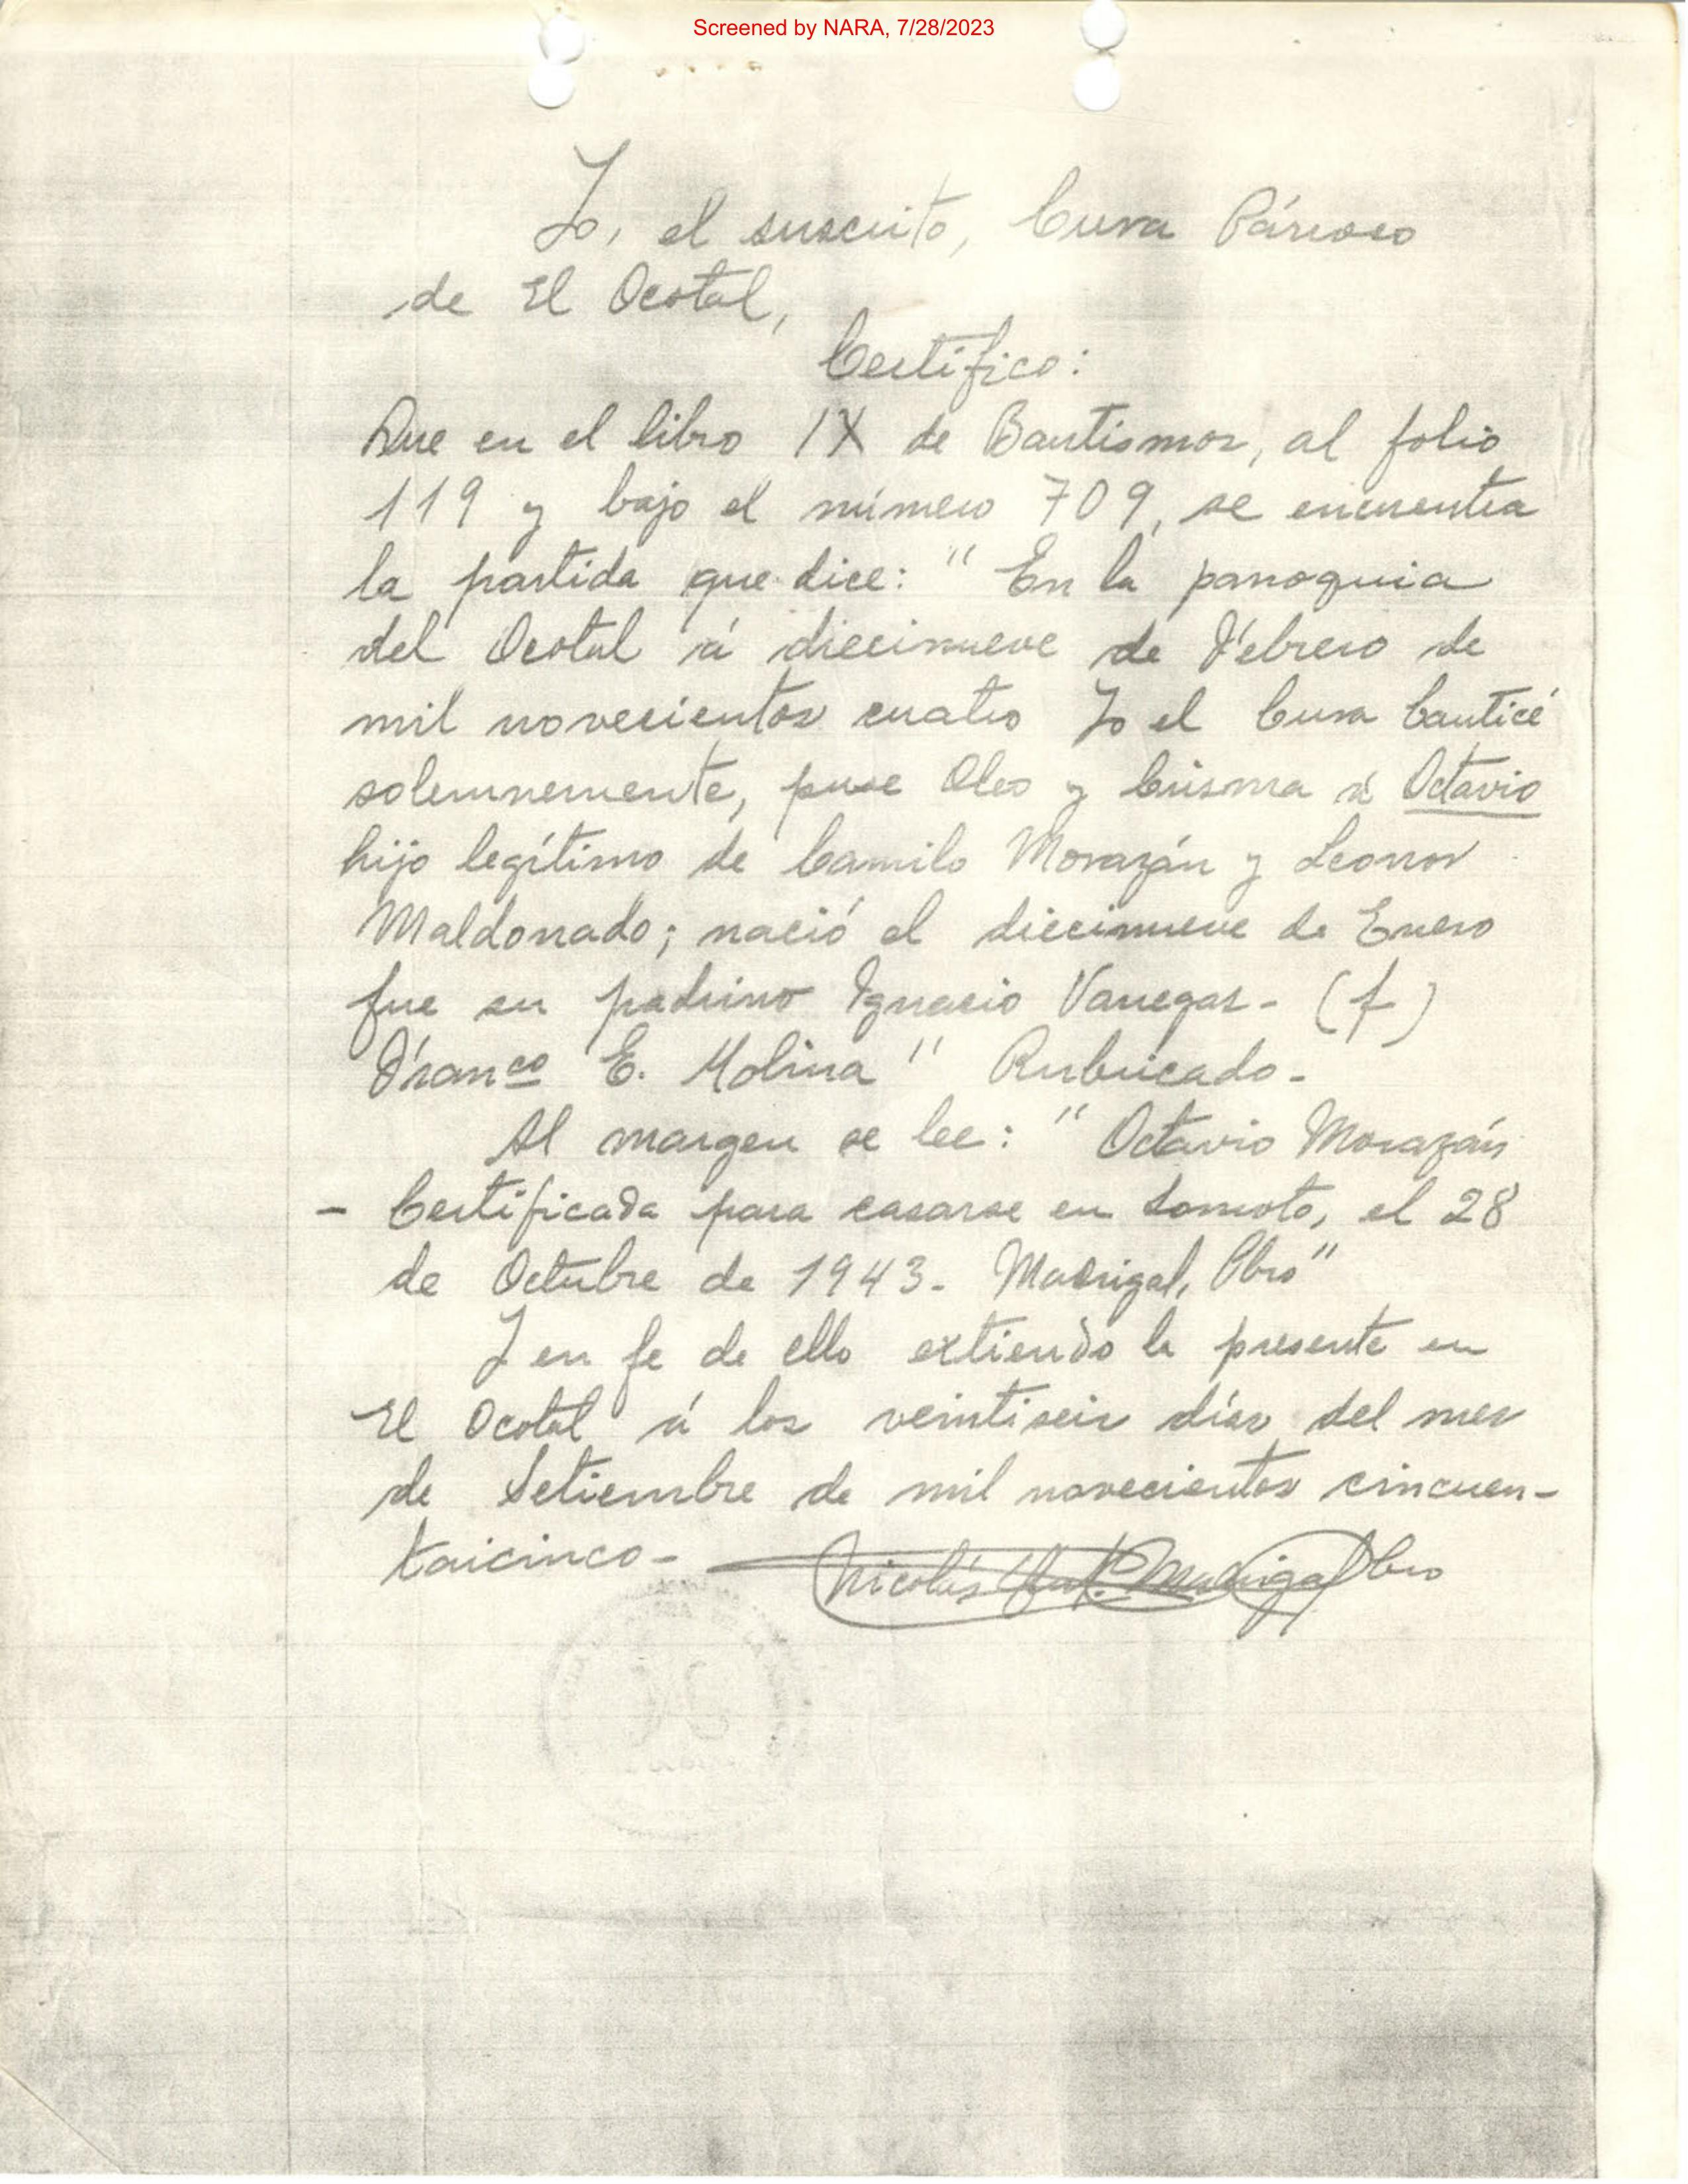 Screened by NARA, 7/28/2023
Yo, el suscrito, Cura Párroco
de El Ocotal,
Certifico:
Que en el libro IX de Bautismos, al folio
119 y bajo el número 709, se encuentra
la partida que dice: "En la parroquia
del Ocotal á diecinueve de Febrero de
mil novecientos cuatro Yo el Cura bauticé
solemnemente, puse Oleo y Crisma á Octavio
hijo legítimo de Camilo Morazán y Leonor
Maldonado; nació el diecinueve de Enero
fue su padrino Ignacio Vanegas - (f)
Franco E. Molina" Rubricado -
Al margen se lee: "Octavio Morazán
- Certificada para casarse en Somoto, el 28
de Octubre de 1943 - Madrigal, Pbro"
Y en fe de ello extiendo la presente en
El Ocotal á los veintiseis días del mes
de Setiembre de mil novecientos cincuen-
taicinco - Nicolás Madrigal Pbro